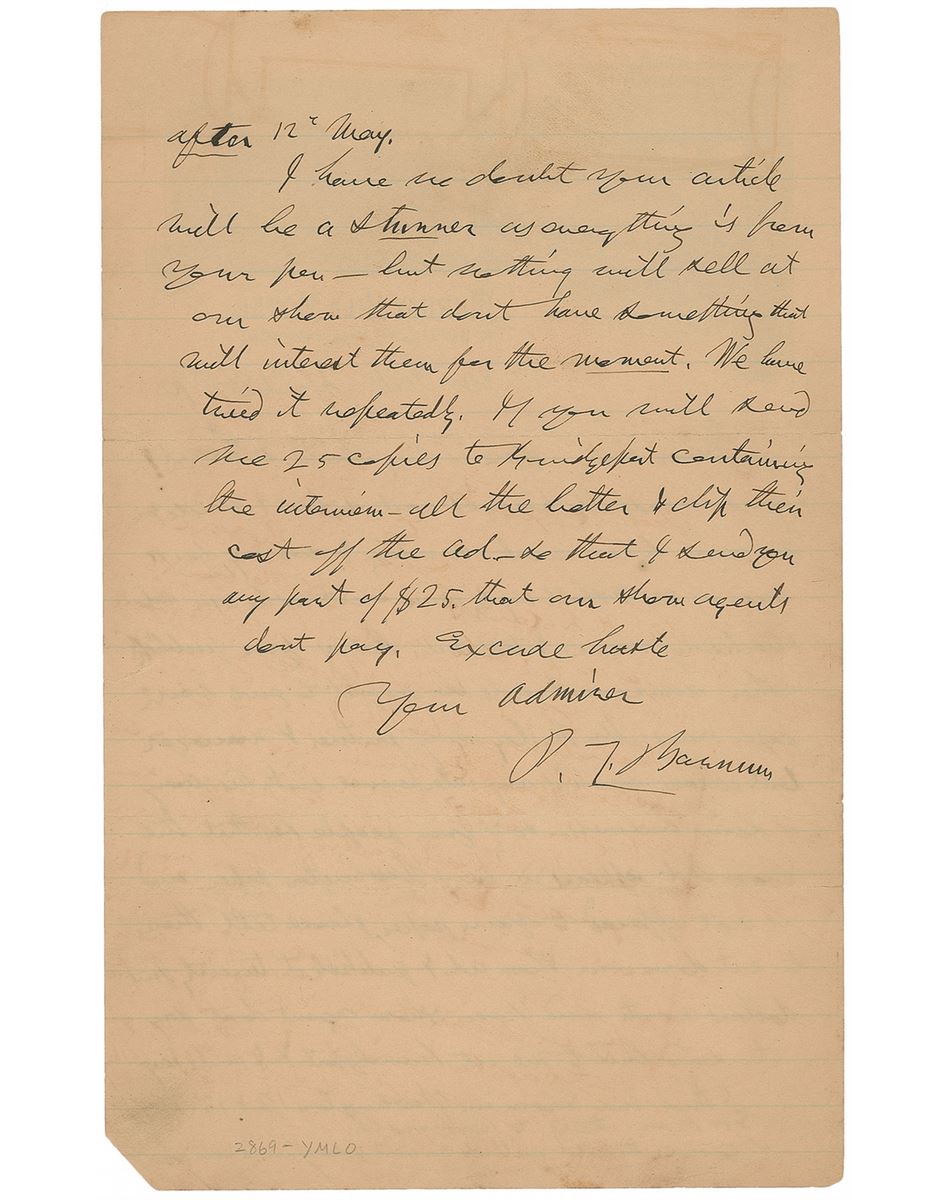 after 12ᵗ May.
I have no doubt your article
will be a stunner as everything is from
your pen – but nothing will sell at
our show that dont have something that
will interest them for the moment. We have
tried it repeatedly. If you will send
me 25 copies to Bridgeport containing
the interview – all the better & clip their
cost off the ad. – so that I send you
any part of $25. that our show agents
dont pay. Excuse haste
Your Admirer
P. T. Barnum
2869 – YMLO